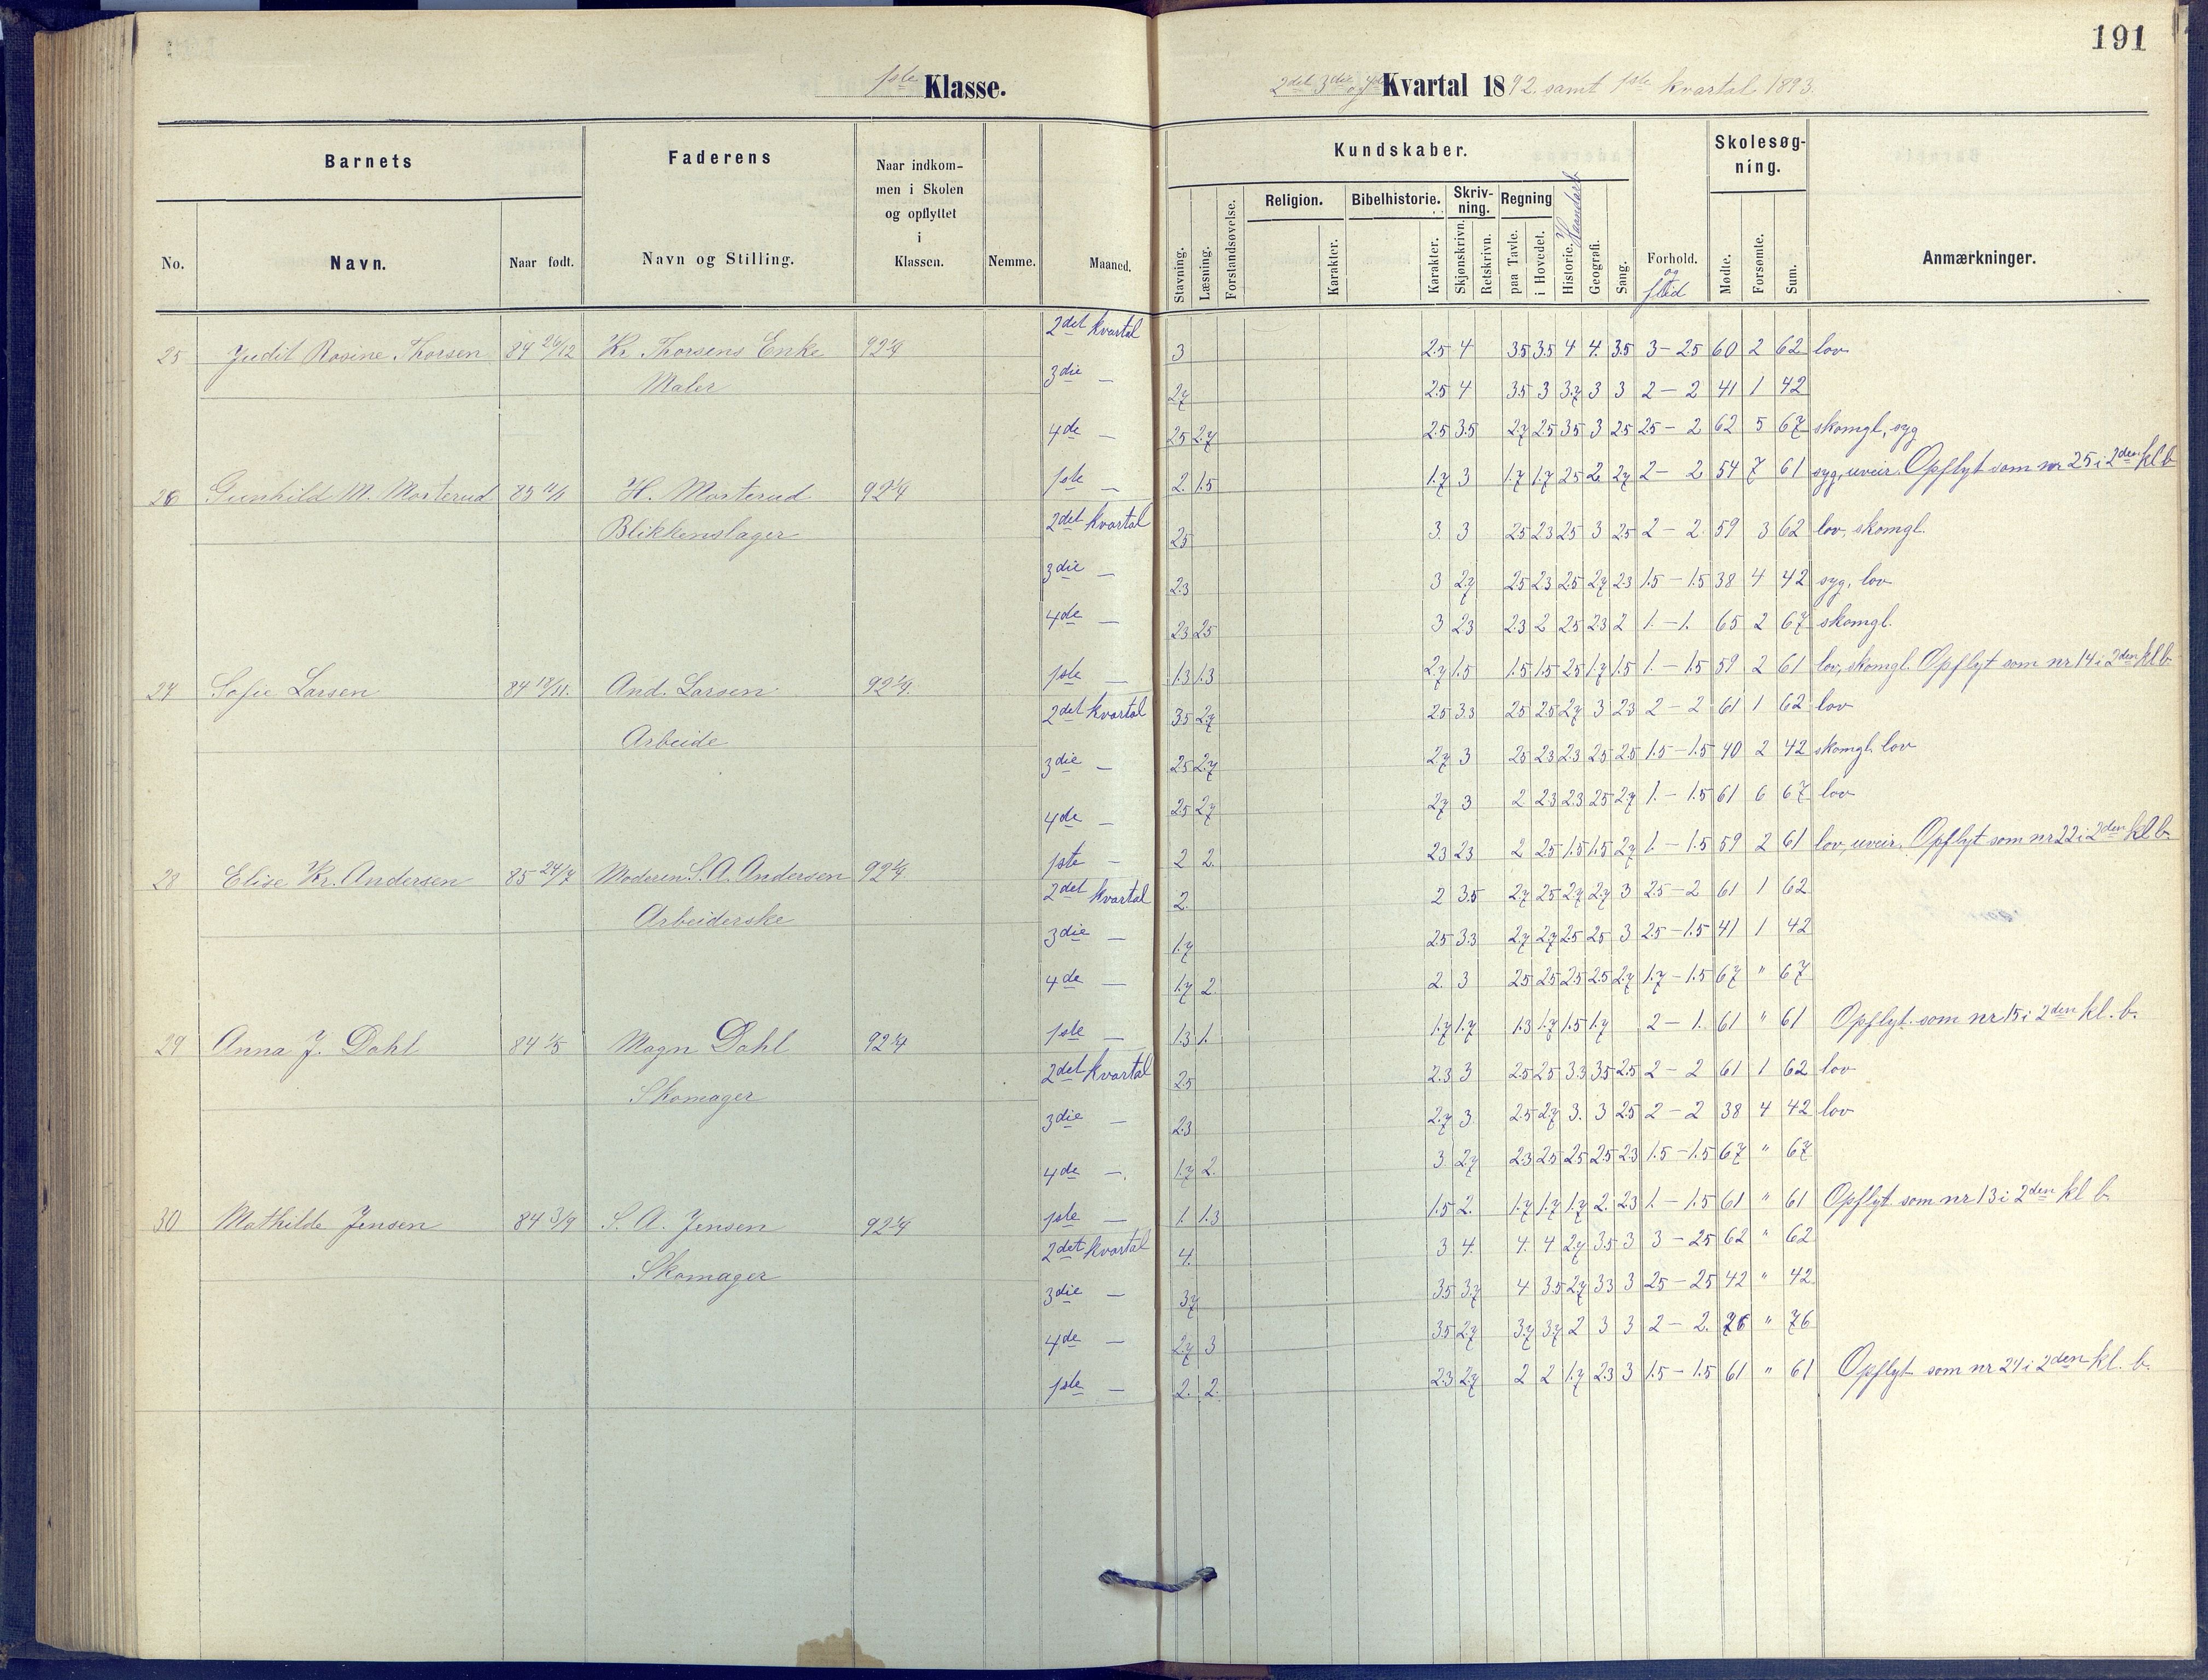 191
1ste Klasse.
2det 3die og 4de Kvartal 1892. samt 1ste kvartal 1893.
Barnets
Faderens
Naar indkommen i Skolen og opflyttet i Klassen.
Kundskaber.
Skolesøgning.
Religion. Bibelhistorie. Skrivning. Regning
No. Navn. Naar født. Navn og Stilling. Nemme. Maaned. Stavning. Læsning. Forstandsøvelse. Karakter. Karakter. Skjønskrivn. Retskrivn. paa Tavle. i Hovedet. Historie. Haandarb Geografi. Sang. Forhold. og flid Mødte. Forsømte. Sum. Anmærkninger.
25 Judit Rosine Thorsen 84 26/12 Kr. Thorsens Enke 92 2det kvartal 3 2.5 4 3.5 3.5 4 4. 3.5 3 - 2.5 60 2 62 lov
Maler 3die — 2.7 2.5 4 3.5 3 3.7 3 3 2 - 2 41 1 42
4de — 2.5 2.7 2.5 3.5 2.7 2.5 3.5 3 2.5 2.5 - 2 62 5 67 skomgl, syg
1ste — 2. 1.5 1.7 3 1.7 1.7 2.5 2 2.7 2 - 2 54 7 61 syg, uveir. Opflyt som nr 25 i 2den kl b
26 Gunhild M. Morterud H. Morterud 92
Blikkenslager 2det kvartal 2.5 3. 3 2.5 2.3 2.5 3 2.5 2 - 2. 59 3 62 lov, skomgl.
3die — 2.3 3 2.7 2.5 2.3 2.5 2.7 2.3 1.5 - 1.5 38 4 42 syg, lov
4de — 2.3 2.5 3 2.3 2.3 2 2.5 2.3 2 1. - 1. 65 2 67 skomgl.
1ste — 1.3 1.3 2.7 1.5 1.5 1.5 2.5 1.7 1.5 1. - 1.5 59 2 61 lov, skomgl. Opflyt som nr 14 i 2den kl b
27 Sofie Larsen 84 18/11. And. Larsen 92
2det kvartal 3.5 2.7 2.5 3.3 2.5 2.5 2.7 3 2.3 2 - 2 61 1 62 lov
Arbeide 3die — 2.5 2.7 2.7 3 2.5 2.3 2.3 2.5 2.5 1.5 - 1.5 40 2 42 skomgl. lov
4de — 2.5 2.7 2.7 3 2 2.3 2.3 2.5 2.7 1. - 1.5 61 6 67 lov
1ste — 2 2. 2.3 2.3 2 2.5 1.5 1.5 2.7 1. - 1.5 59 2 61 lov, uveir. Opflyt som nr 22 i 2den kl b.
28 Elise Kr. Andersen 85 24/7 Moderen S. A. Andersen 92
2det kvartal 2. 2 3.5 2.7 2.5 2.7 2.7 3 2.5 - 2 61 1 62
Arbeiderske 3die — 1.7 2.5 3.3 2.7 2.7 2.5 2.5 3 2.5 - 1.5 41 1 42
4de — 1.7 2. 2. 3 2.5 2.5 2.5 2.5 2.7 1.7 - 1.5 67 " 67
1ste — 1.3 1. 1.7 1.7 1.3 1.7 1.5 1.7 2 - 1. 61 " 61 Opflyt. som nr 15 i 2den kl. b.
29 Anna J. Dahl 84 Magn Dahl 92
2det kvartal 2.5 2.3 3 2.5 2.5 3.3 3.5 2.5 2 - 2 61 1 62 lov
Skomager 3die — 2.3 2.7 3. 2.5 2.7 3. 3 2.5 2 - 2 38 4 42 lov
4de —. 1.7 2. 3. 2.7 2.3 2.5 2.5 2.5 2.3 1.5 - 1.5 67 " 67
1ste — 1. 1.3 1.5 2. 1.7 1.7 1.7 2. 2.3 1 - 1.5 61 " 61 Opflyt. som nr 13 i 2den kl b
30 Mathilde Jensen 84 3/9 S. A. Jensen 92
2det kvartal 4. 3 4. 4. 4 2.7 3.5 3 3 - 2.5 62 " 62
Skomager 3die — 3.7 3.5 3.7 4 3.5 2.7 3.3 3 2.5 - 2.5 42 " 42.
4de — 2.7 3 3.5 2.7 3.7 3.7 2 3 3 2 - 2. 76 " 76
1ste — 2. 2. 2.3 2.7 2 2 1.7 2.3 3 1.5 - 1.5 61 " 61 Opflyt som nr 24 i 2den kl. b.